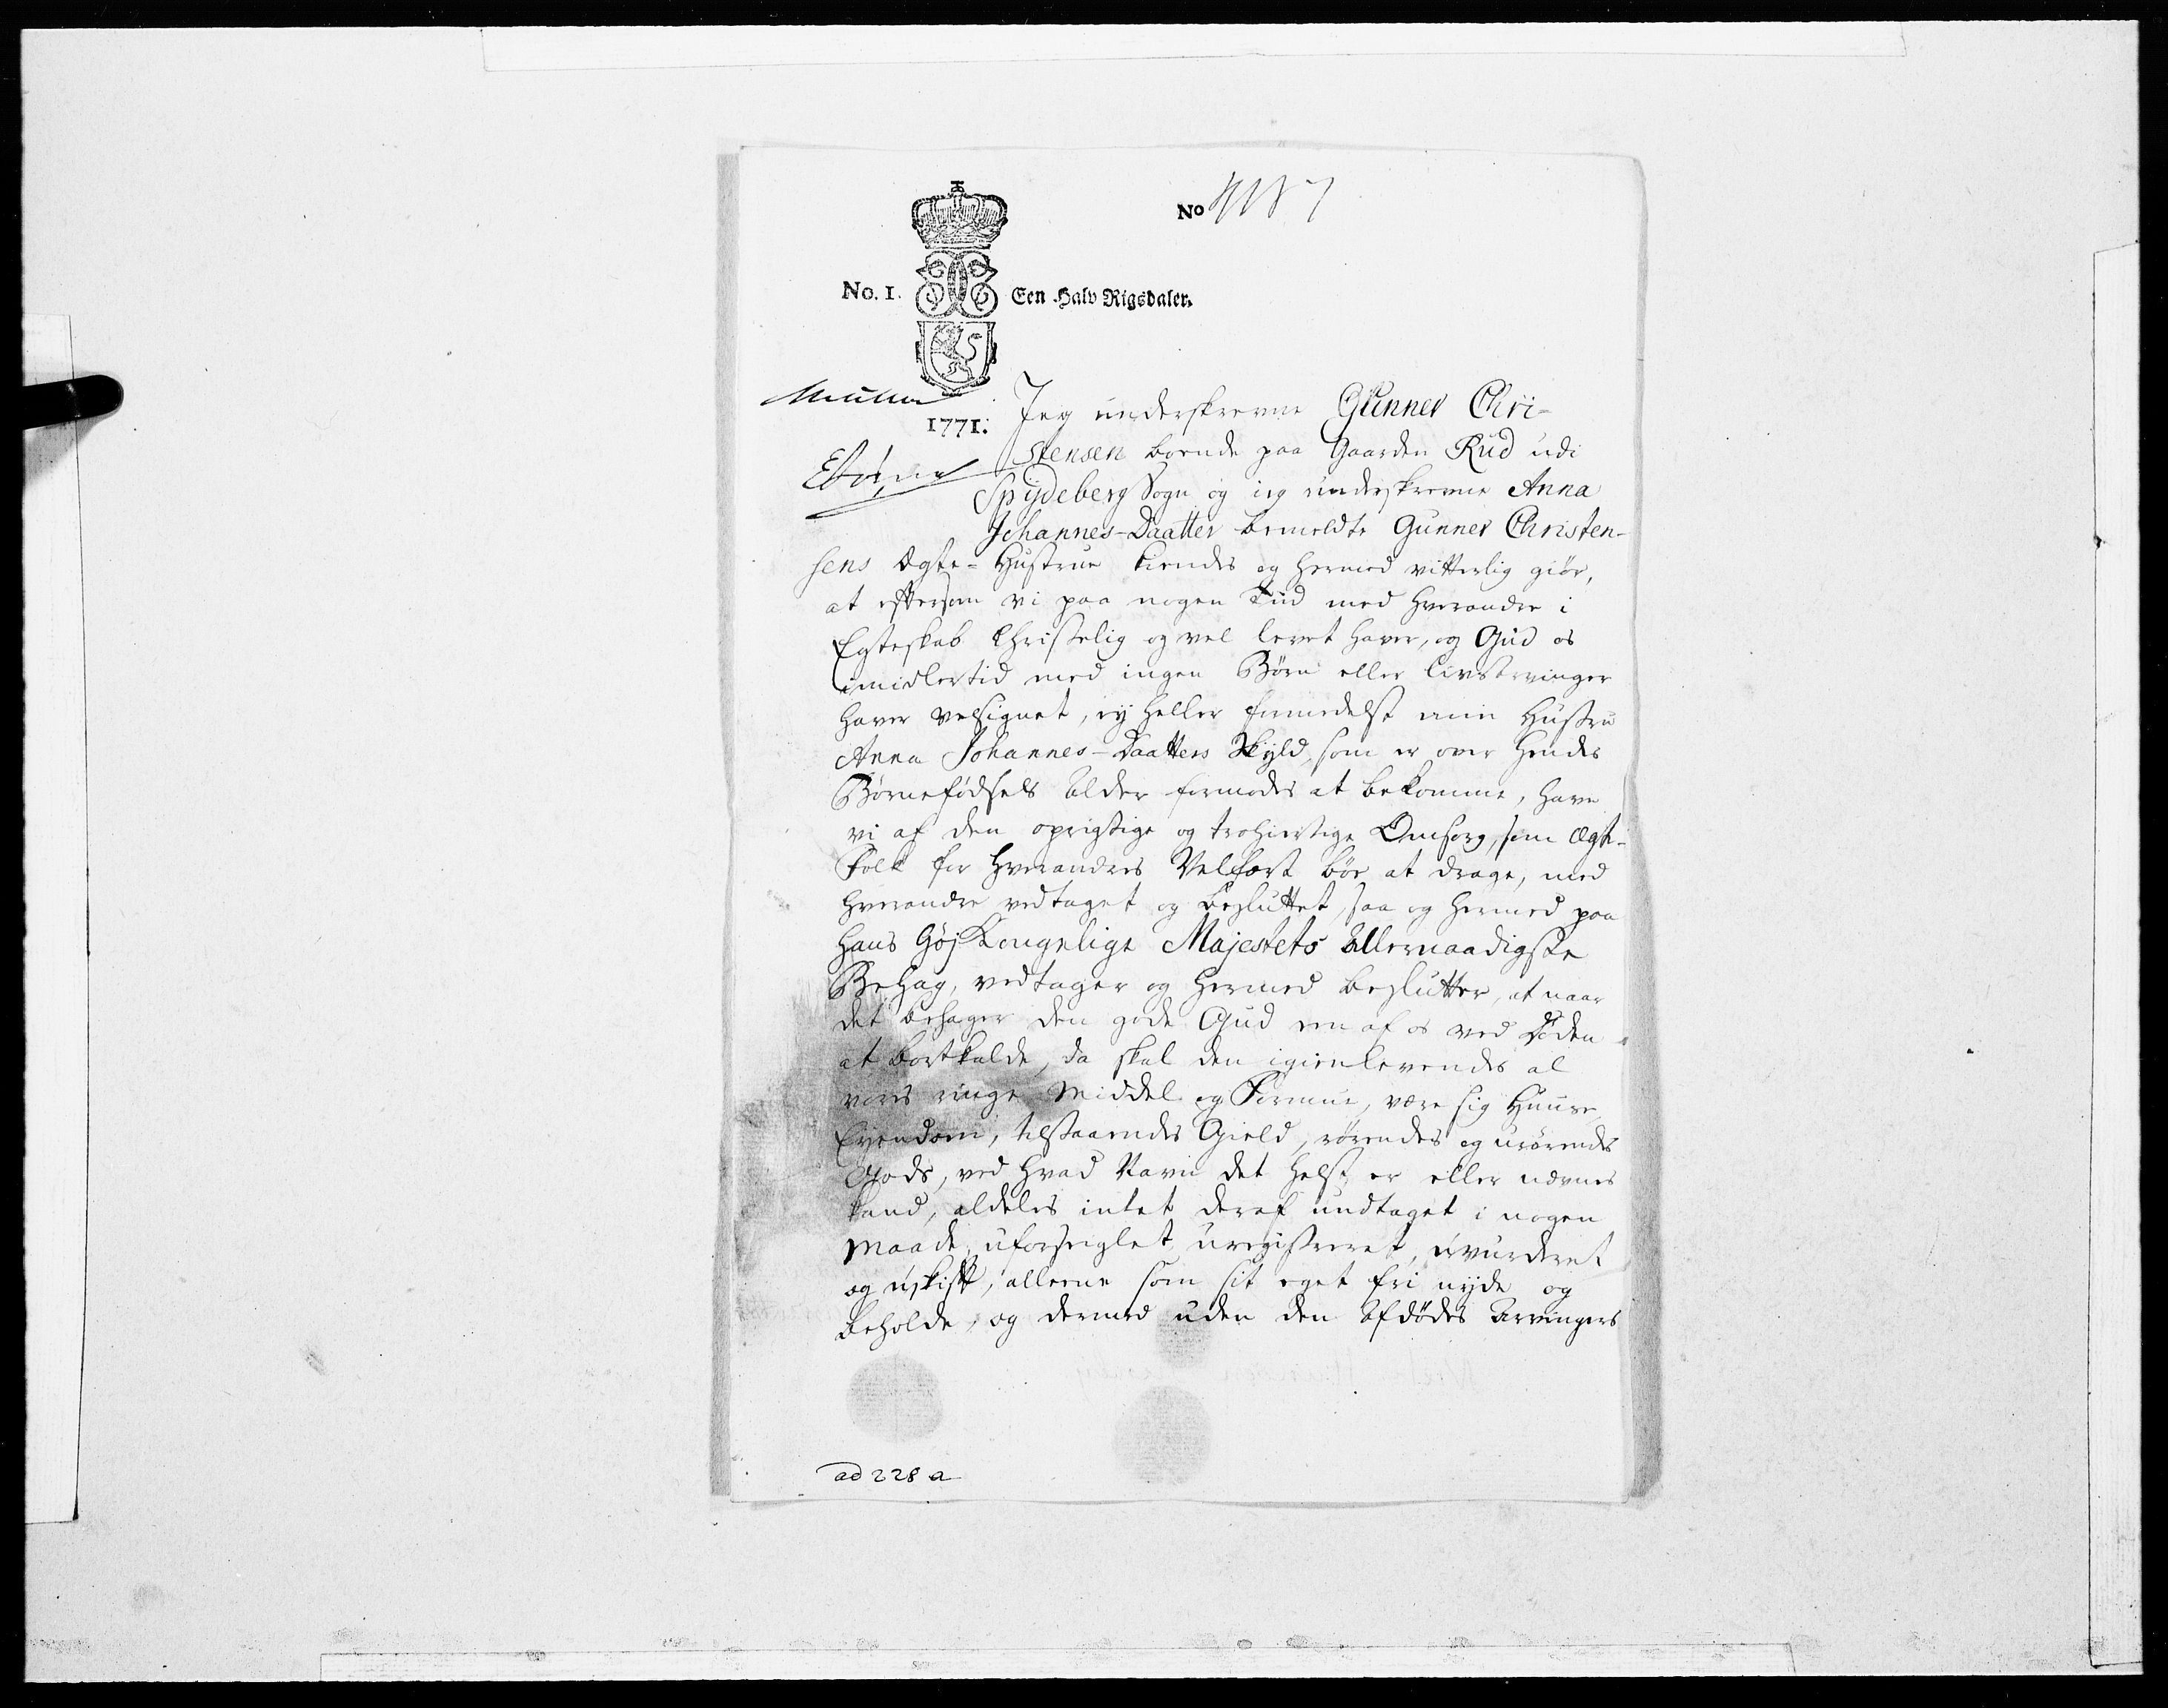 No 4187
No. 1. Een Halv Rigsdaler.
1771.
Jeg underskrevne Gunner Chri-
stensen boende paa Gaarden Rud udi
Spydeberg Sogn og jeg underskrevne Anna
Johannes-Daatter bemeldte Gunner Christen-
sens Ægte-Hustrue kiendes og hermed vitterlig giør,
at eftersom vi paa nogen Tiid med hverandre i
Egteskab Christelig og vel levet haver, og Gud os
imidlertid med ingen Børn eller Livsarvinger
haver velsignet, ey heller formedelst min Hustru
Anna Johannes-Daatters Skyld, som er over hendes
Børnefødsels Alder formodes at bekomme, have
vi af den oprigtige og trohiertige Omsorg, som Ægte-
Folk for hverandres Velfært bør at drage, med
hverandre vedtaget og besluttet, saa og hermed paa
Hans Høj Kongelige Majestets Allernaadigste
Behag, vedtager og hermed beslutter, at naar
det behager den gode Gud een af os ved Døden
at bortkalde, da skal den igienlevendes al
vores ringe Middel og Formue, være sig Huuse,
Eyendom, tilstaaendes Gield, rørendes og urørendes
Gods, ved hvad Navn det helst er eller nævnes
kand, aldeles intet deraf undtaget i nogen
Maade, uforseiglet, uregistreret, uvurderet
og uskift, alleene som sit eget frí nyde og
beholde, og dermed uden den Afdødes Arvingers
ad 228 a